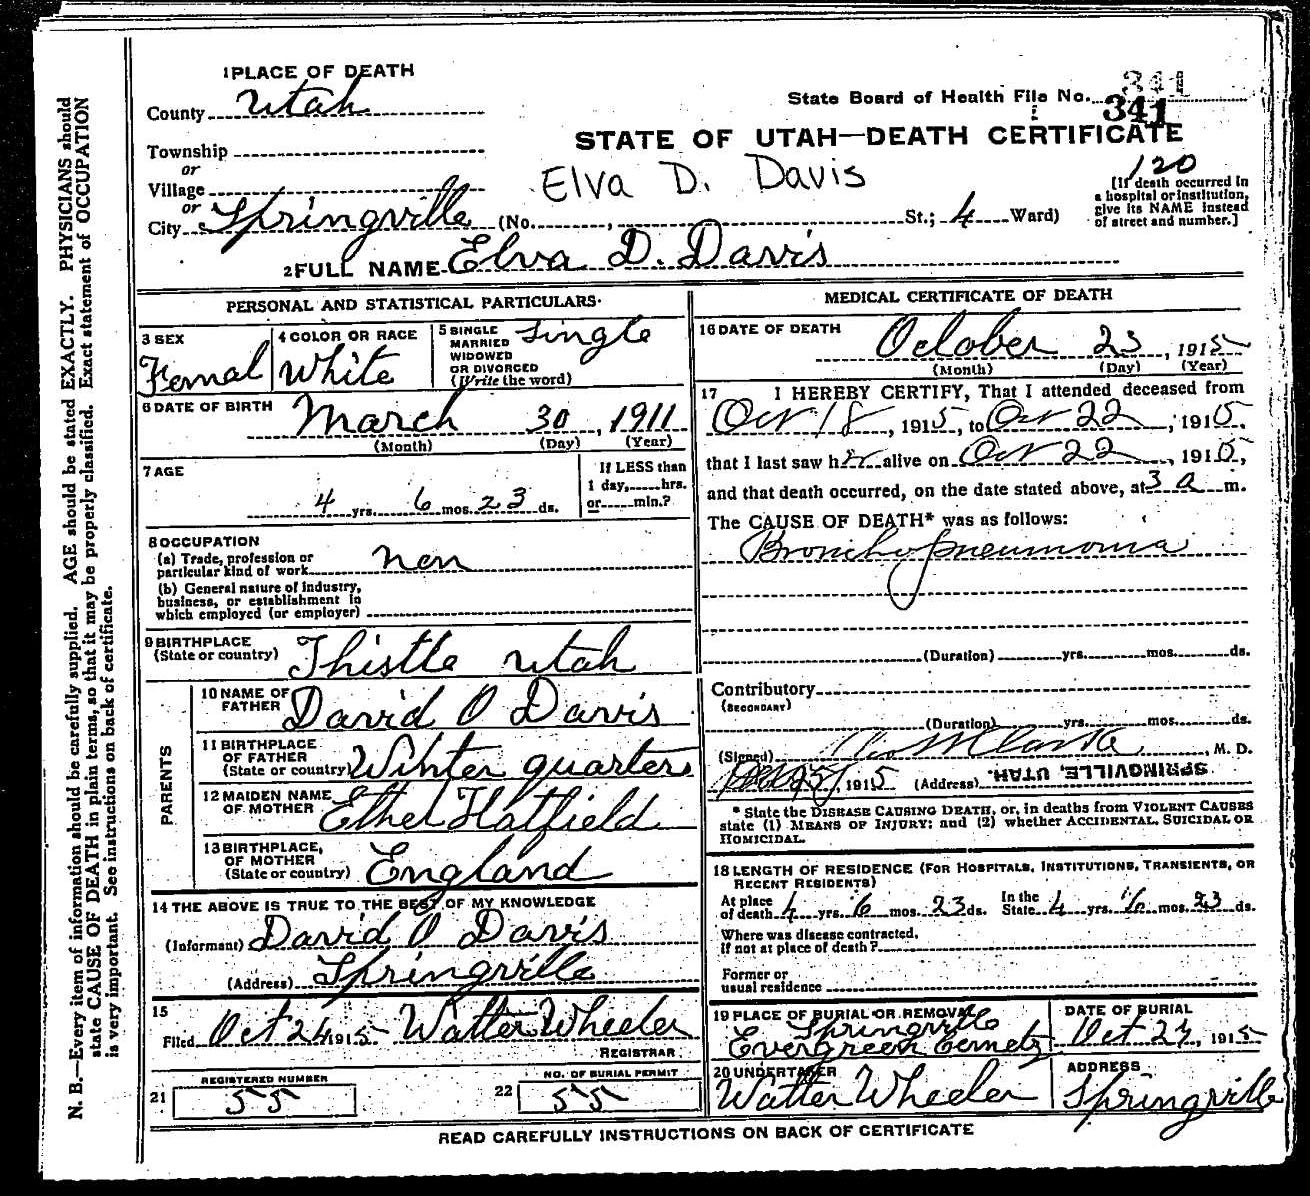 1 PLACE OF DEATH
County Utah
State Board of Health File No. 341
341
STATE OF UTAH—DEATH CERTIFICATE
Township
or
Village
or
City Springville (No. , St.; 4 Ward)
Elva D. Davis
120
[If death occurred in
a hospital or institution,
give its NAME instead
of street and number.]
2 FULL NAME Elva D. Davis
PERSONAL AND STATISTICAL PARTICULARS
3 SEX
Femal
4 COLOR OR RACE
White
5 SINGLE
MARRIED
WIDOWED
OR DIVORCED
(Write the word)
Single
6 DATE OF BIRTH
March 30, 1911
(Month) (Day) (Year)
7 AGE
4 yrs. 6 mos. 23 ds.
If LESS than
1 day, hrs.
or min.?
8 OCCUPATION
(a) Trade, profession or
particular kind of work non
(b) General nature of industry,
business, or establishment in
which employed (or employer)
9 BIRTHPLACE
(State or country) Thistle Utah
PARENTS
10 NAME OF
FATHER David O Davis
11 BIRTHPLACE
OF FATHER
(State or country) Winter quarters
12 MAIDEN NAME
OF MOTHER Ethel Hatfield
13 BIRTHPLACE,
OF MOTHER
(State or country) England
14 THE ABOVE IS TRUE TO THE BEST OF MY KNOWLEDGE
(Informant) David O Davis
(Address) Springville
15
Filed Oct 24 1915 Walter Wheeler
REGISTRAR
21 REGISTERED NUMBER
55
22 NO. OF BURIAL PERMIT
55
MEDICAL CERTIFICATE OF DEATH
16 DATE OF DEATH
October 23, 1915
(Month) (Day) (Year)
17 I HEREBY CERTIFY, That I attended deceased from
Oct 18, 1915, to Oct 22, 1915,
that I last saw her alive on Oct 22, 1915,
and that death occurred, on the date stated above, at 3 a m.
The CAUSE OF DEATH* was as follows:
Broncho pneumonia
(Duration) yrs. mos. ds.
Contributory
(SECONDARY)
(Duration) yrs. mos. ds.
(Signed) , M. D.
1915 (Address) SPRINGVILLE, UTAH.
* State the DISEASE CAUSING DEATH, or, in deaths from VIOLENT CAUSES
state (1) MEANS OF INJURY; and (2) whether ACCIDENTAL, SUICIDAL OR
HOMICIDAL.
18 LENGTH OF RESIDENCE (FOR HOSPITALS, INSTITUTIONS, TRANSIENTS, OR
RECENT RESIDENTS)
At place
of death 4 yrs. 6 mos. 23 ds.
In the
State 4 yrs. 6 mos. 23 ds.
Where was disease contracted,
if not at place of death?
Former or
usual residence
19 PLACE OF BURIAL OR REMOVAL
Springville
Evergreen Cemetz
DATE OF BURIAL
Oct 27, 1915
20 UNDERTAKER
Walter Wheeler
ADDRESS
Springville
READ CAREFULLY INSTRUCTIONS ON BACK OF CERTIFICATE
N. B.—Every item of information should be carefully supplied. AGE should be stated EXACTLY. PHYSICIANS should
state CAUSE OF DEATH in plain terms, so that it may be properly classified. Exact statement of OCCUPATION
is very important. See instructions on back of certificate.